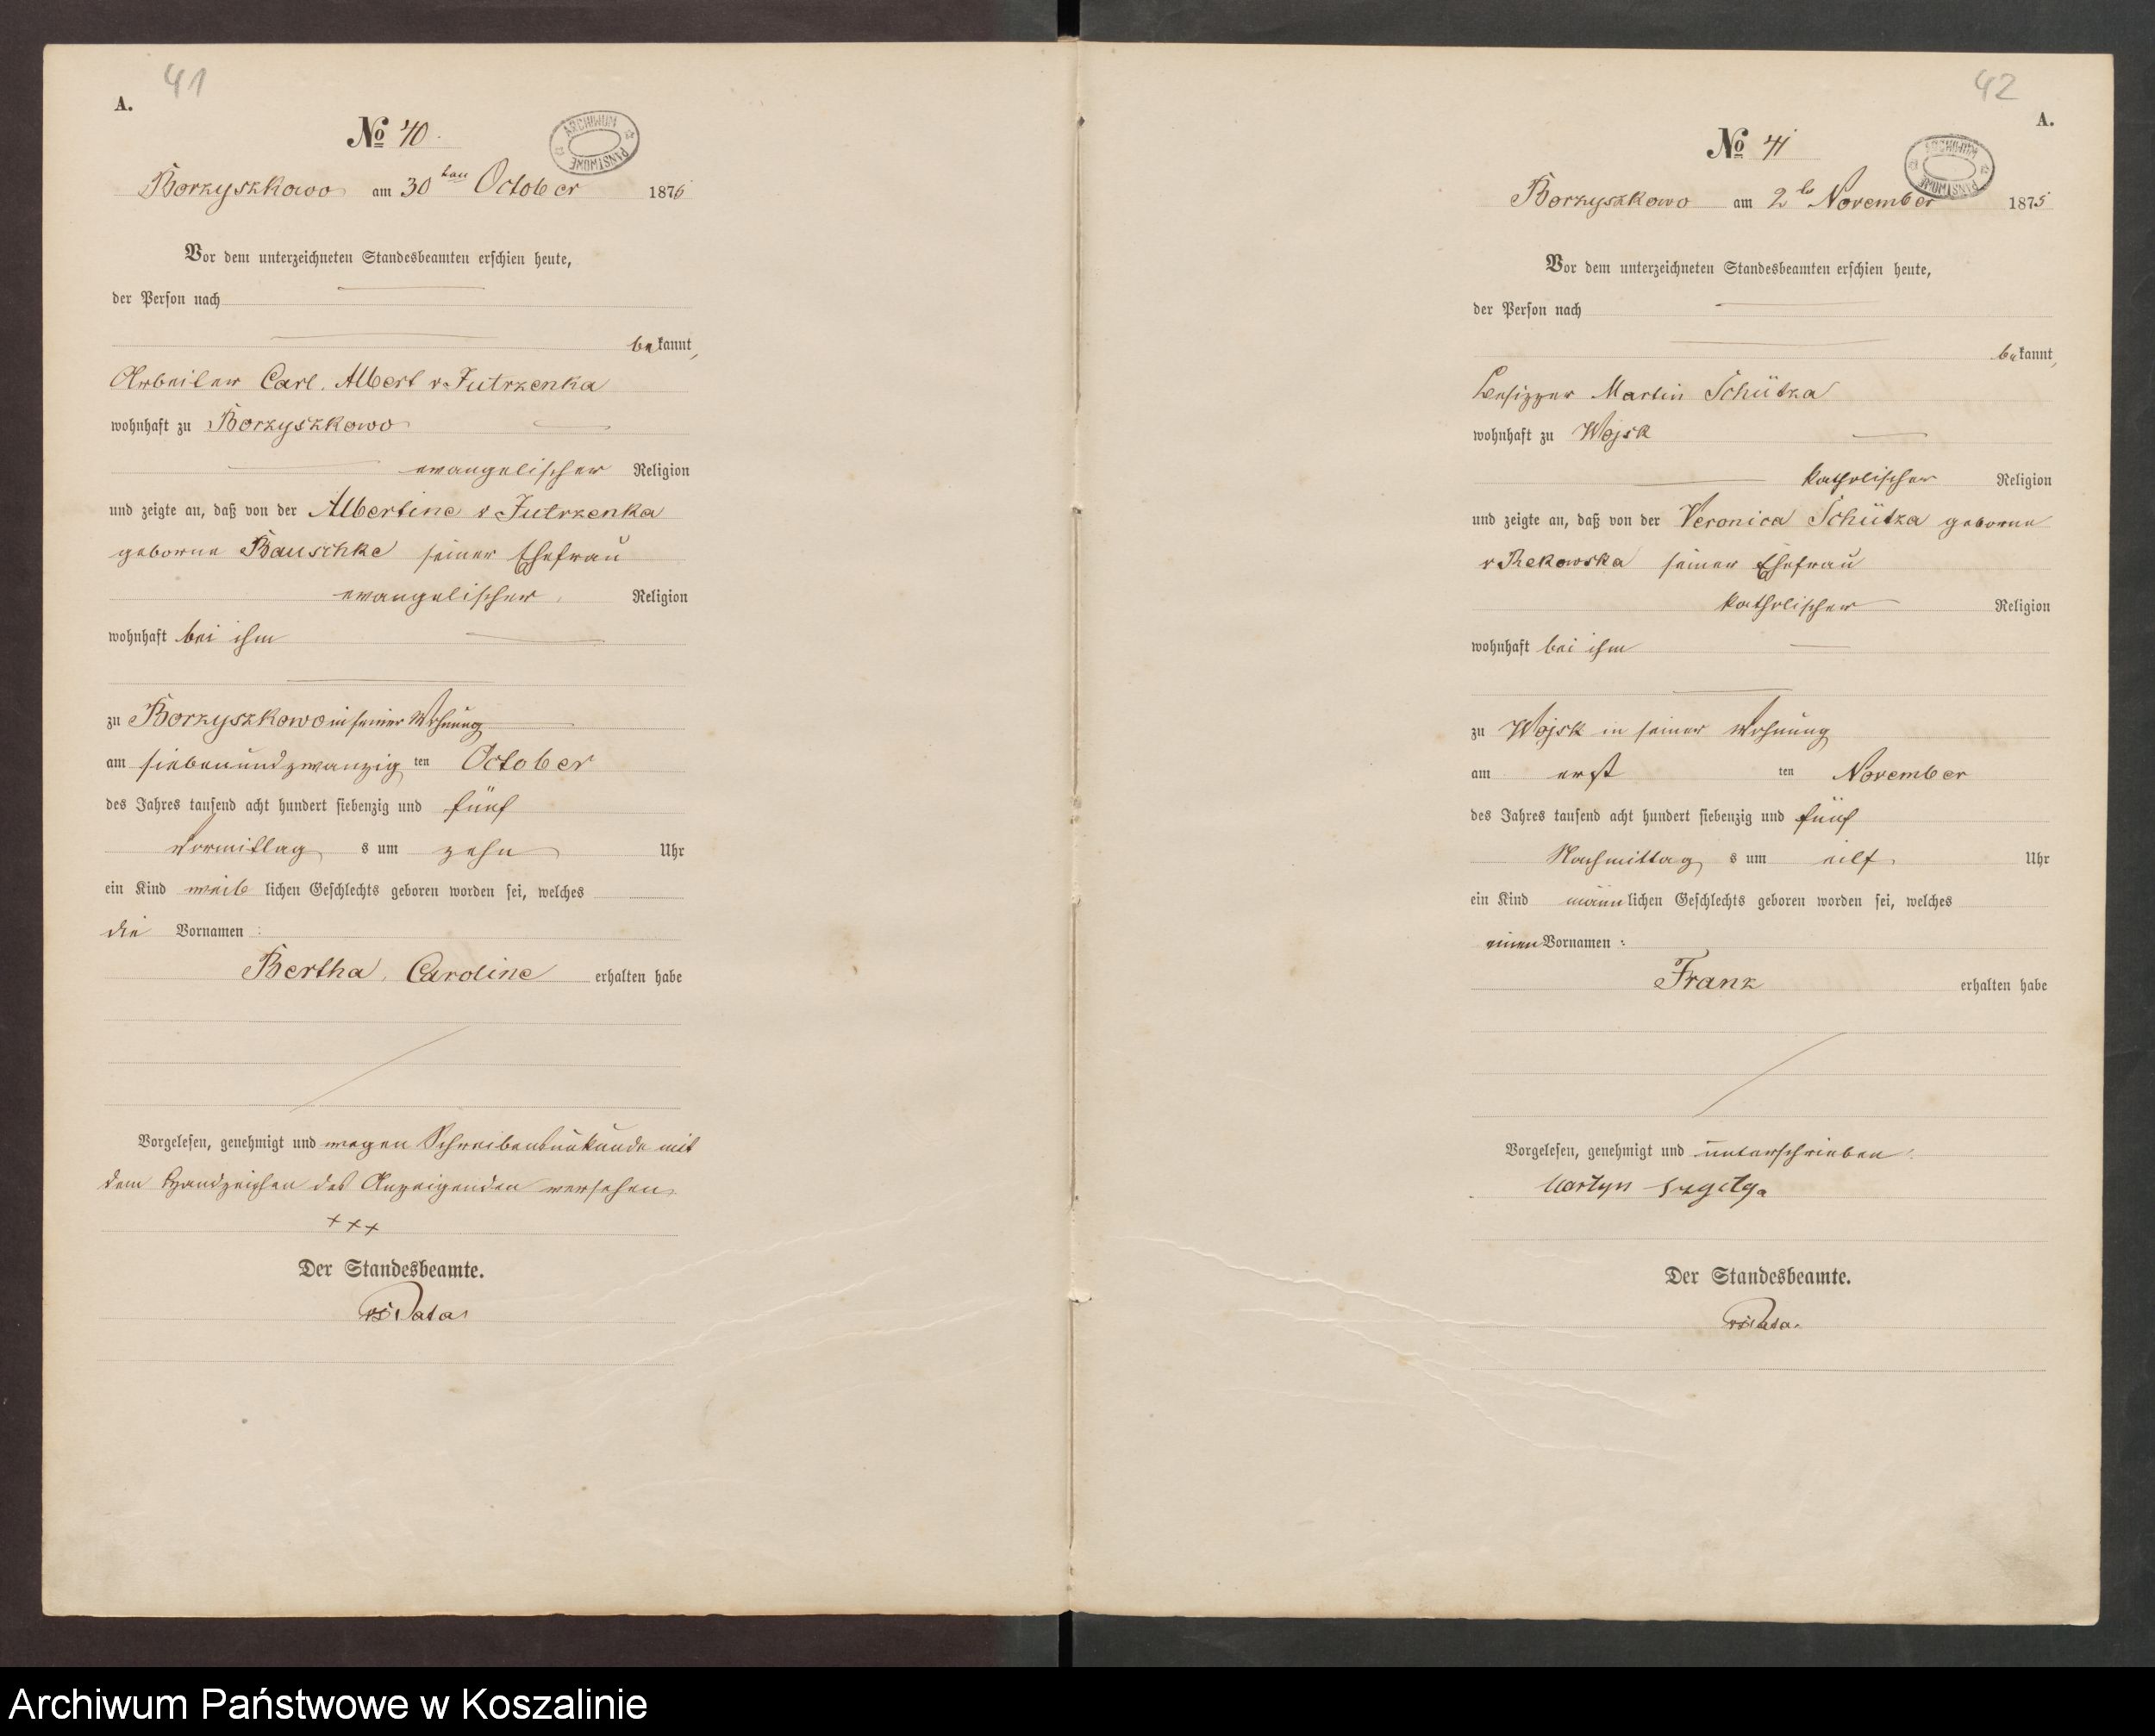 41
A.
No 40.
ARCHIWUM PAŃSTWOWE
Borzyszkowo am 30ten October 1875
Vor dem unterzeichneten Standesbeamten erschien heute,
der Person nach
bekannt,
Arbeiter Carl. Albert v Jutrzenka
wohnhaft zu Borzyszkowo
evangelischer Religion
und zeigte an, daß von der Albertine v Jutrzenka
geborne Bauschke seiner Ehefrau
evangelischer Religion
wohnhaft bei ihm
zu Borzyszkowo in seiner Wohnung
am siebenundzwanzig ten October
des Jahres tausend acht hundert siebenzig und fünf
Vormittag s um zehn Uhr
ein Kind weib lichen Geschlechts geboren worden sei, welches
die Vornamen :
Bertha, Caroline erhalten habe
Vorgelesen, genehmigt und wegen Schreibensunkunde mit
dem Handzeichen des Anzeigenden versehen
+++
Der Standesbeamte.
42
A.
No 41
ARCHIWUM PAŃSTWOWE
Borzyszkowo am 2te November 1875
Vor dem unterzeichneten Standesbeamten erschien heute,
der Person nach
bekannt,
Besitzer Martin Schütza
wohnhaft zu Wojsk
katholischer Religion
und zeigte an, daß von der Veronica Schütza geborne
v Rekowska seiner Ehefrau
katholischer Religion
wohnhaft bei ihm
zu Wojsk in seiner Wohnung
am erst ten November
des Jahres tausend acht hundert siebenzig und fünf
Nachmittag s um eilf Uhr
ein Kind männ lichen Geschlechts geboren worden sei, welches
einen Vornamen :
Franz erhalten habe
Vorgelesen, genehmigt und unterschrieben
Martyn
Der Standesbeamte.
Archiwum Państwowe w Koszalinie